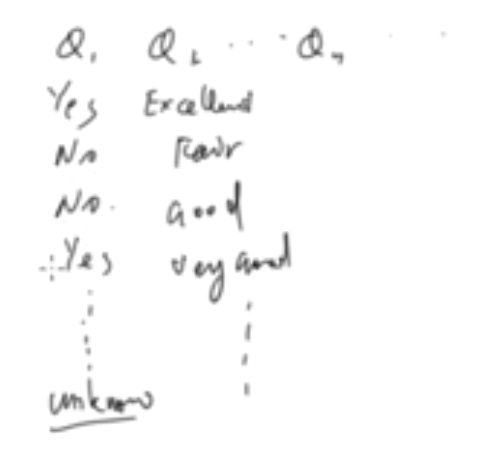 Q1 Q2 ... Qn ...
Yes Excellend
No Fair
No. Good
Yes very good
unknow